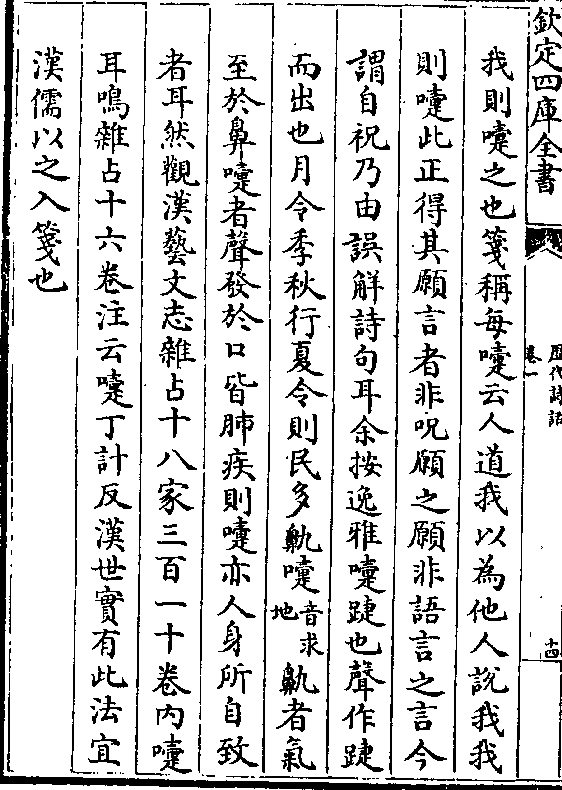 欽定四庫全書
歷代詩話
卷一
十四
我則嚏之也箋稱每嚏云人道我以為他人說我我
則嚏此正得其願言者非呪願之願非語言之言今
謂自祝乃由誤解詩句耳余按逸雅嚏踕也聲作踕
而出也月令季秋行夏令則民多鼽嚏音求地鼽者氣
至於鼻嚏者聲發於口皆肺疾則嚏亦人身所自致
者耳然觀漢藝文志雜占十八家三百一十卷內嚏
耳鳴雜占十六卷注云嚏丁計反漢世實有此法宜
漢儒以之入箋也